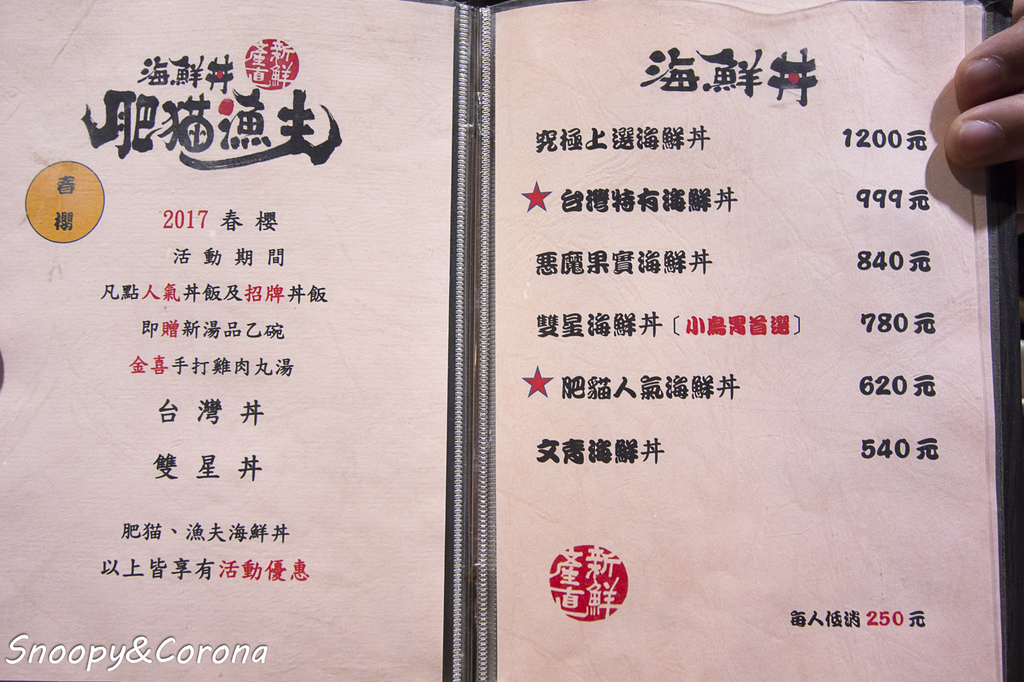 海鮮丼
新鮮產直
肥猫漁夫
春櫻
2017 春櫻
活動期間
凡點人氣丼飯及招牌丼飯
即贈新湯品乙碗
金喜手打雞肉丸湯
台灣丼
雙星丼
肥猫、漁夫海鮮丼
以上皆享有活動優惠
Snoopy&Corona
海鮮丼
究極上選海鮮丼 1200元
★台灣特有海鮮丼 999元
惡魔果實海鮮丼 840元
雙星海鮮丼〔小鳥胃首選〕 780元
★肥貓人氣海鮮丼 620元
文青海鮮丼 540元
新鮮產直
每人低消250元